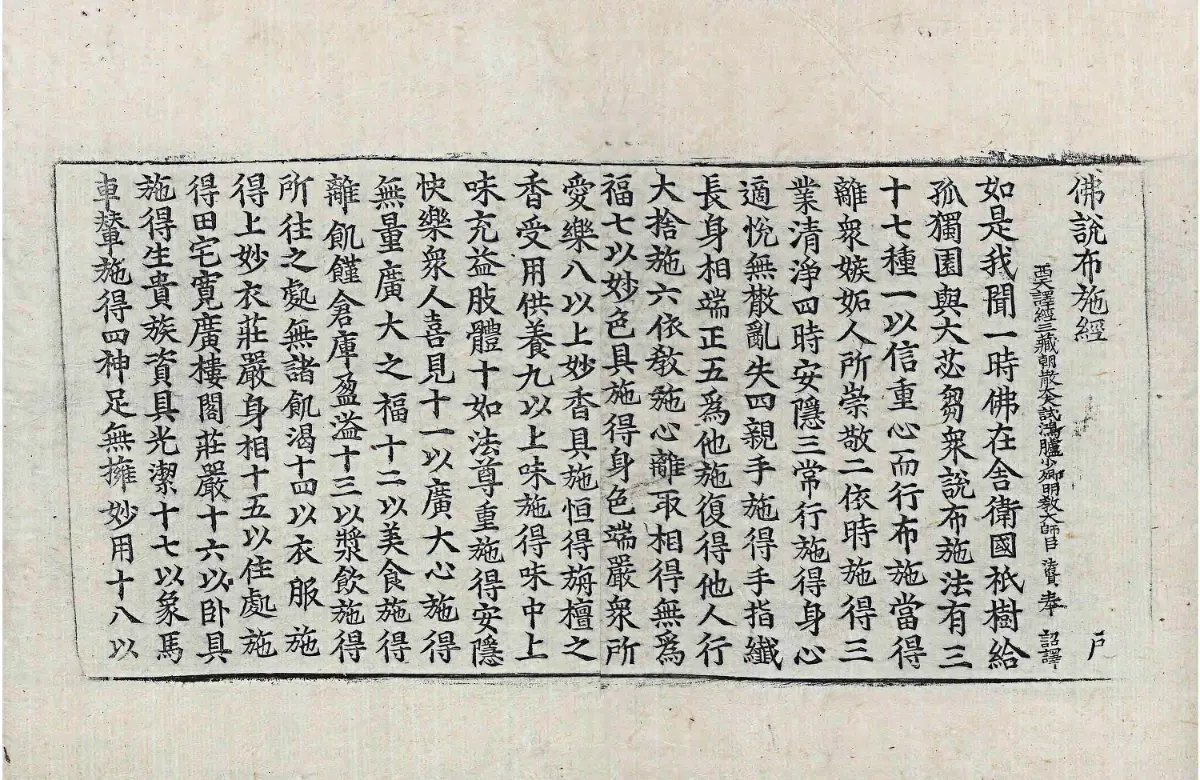 佛說布施經 戸
西天譯經三藏朝散大夫試鴻臚少卿明教大師臣法賢奉 詔譯
如是我聞一時佛在舍衛國祇樹給
孤獨園與大苾芻衆說布施法有三
十七種一以信重心而行布施當得
離衆嫉妬人所崇敬二依時施得三
業清淨四時安隱三常行施得身心
適悅無散亂失四親手施得手指纖
長身相端正五爲他施復得他人行
大捨施六依教施心離取相得無爲
福七以妙色具施得身色端嚴衆所
愛樂八以上妙香具施恒得旃檀之
香受用供養九以上味施得味中上
味充益肢體十如法尊重施得安隱
快樂衆人喜見十一以廣大心施得
無量廣大之福十二以美食施得
離飢饉倉庫盈溢十三以漿飲施得
所往之處無諸飢渴十四以衣服施
得上妙衣莊嚴身相十五以住處施
得田宅寬廣樓閣莊嚴十六以卧具
施得生貴族資具光潔十七以象馬
車輦施得四神足無擁妙用十八以